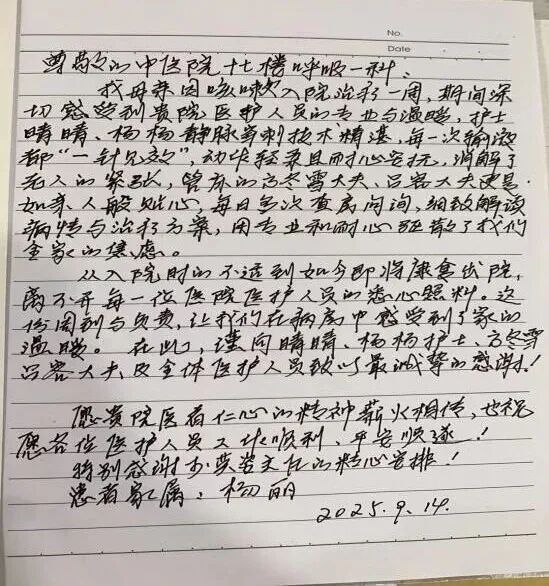 No.
Date
尊敬的中医院十七楼呼吸一科、
我母亲因咳嗽入院治疗一周,期间深
切感受到贵院医护人员的专业与温暖,护士
晴晴、杨杨静脉穿刺技术精湛,每一次输液
都"一针见效",动作轻柔且耐心安抚,消解了
老人的紧张,管床的方冬雪大夫、吕容大夫更是
如亲人般贴心,每日多次查房问询,细致解读
病情与治疗方案,用专业和耐心驱散了我们
全家的焦虑。
从入院时的不适到如今即将康复出院,
离不开每一位医院医护人员的悉心照料。这
份周到与负责,让我们在病房中感受到了家的
温暖。在此,谨向晴晴、杨杨护士、方冬雪
吕容大夫及全体医护人员致以最诚挚的感谢!
愿贵院医者仁心的精神薪火相传,也祝
愿各位医护人员工作顺利、平安顺遂!
特别感谢 主任的精心安排!
患者家属:杨丽
2025.9.14.